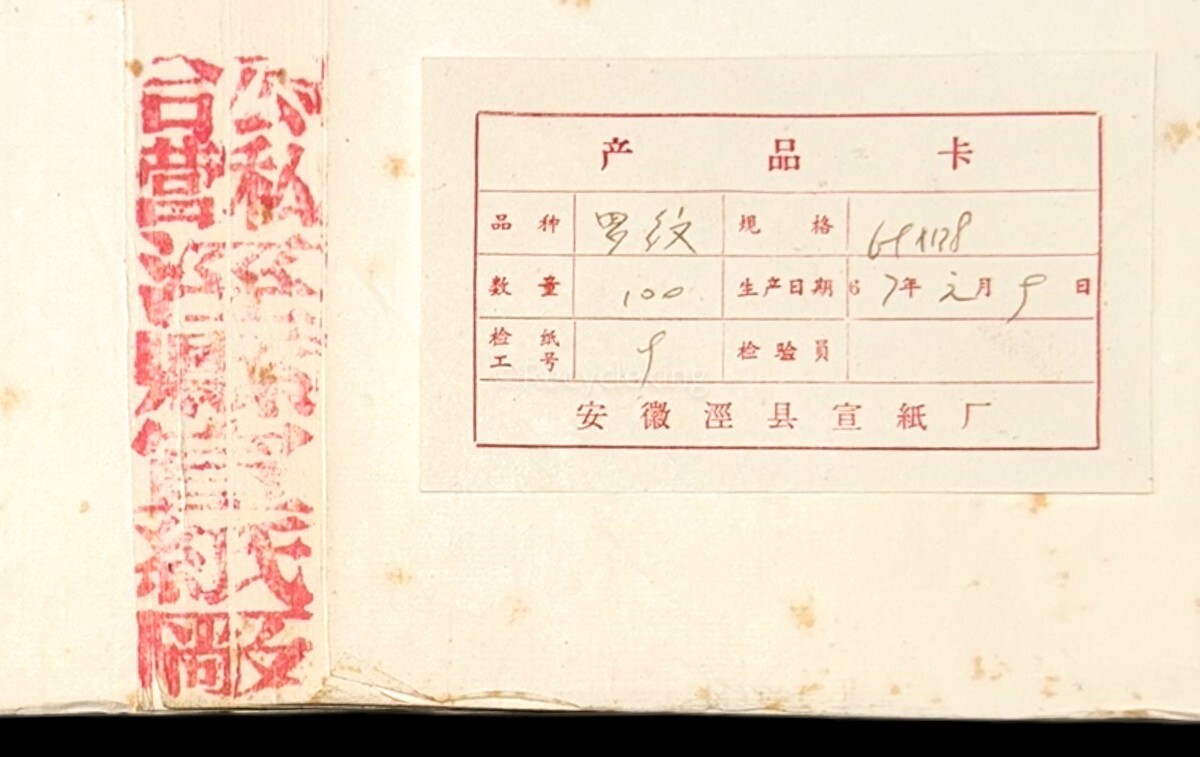 公私
合營
涇縣宣紙廠
产品卡
品种 罗纹 规格 69x138
数量 100 生产日期 67年元月9日
检纸工号 9 检验员
安徽涇县宣紙厂